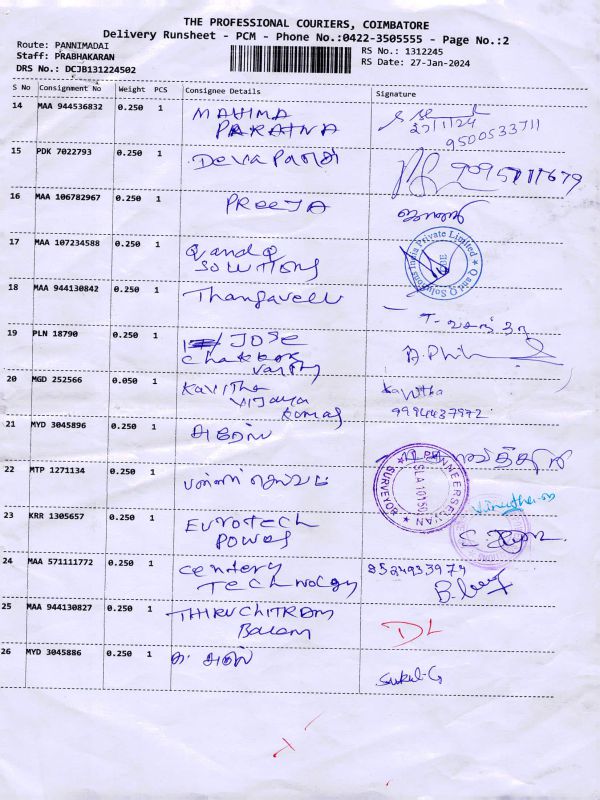 THE PROFESSIONAL COURIERS, COIMBATORE
Delivery Runsheet - PCM - Phone No.:0422-3505555 - Page No.:2
Route: PANNIMADAI
Staff: PRABHAKARAN
DRS No.: DCJB131224502
RS No.: 1312245
RS Date: 27-Jan-2024
S No Consignment No Weight PCS Consignee Details Signature
14 MAA 944536832 0.250 1 MAHIMA
PARATNA
27/1/24
9500533711
15 PDK 7022793 0.250 1 Deva Pandi 9095111679
16 MAA 106782967 0.250 1 PREEJA
17 MAA 107234588 0.250 1 Q and Q
SOLUTIONS
Q and Q Solutions India Private Limited
18 MAA 944130842 0.250 1 Thangavelu
19 PLN 18790 0.250 1 JOSE
Chakkra
varthy
20 MGD 252566 0.050 1 Kavitha
Vijaya
kumar
Kavitha
9994437972
21 MYD 3045896 0.250 1
22 MTP 1271134 0.250 1 பன்னீர் செல்வம்
PANNEERSELVAN
SURVEYOR
23 KRR 1305657 0.250 1 Eurotech
Power
24 MAA 571111772 0.250 1 Century
Technology
8524933974
25 MAA 944130827 0.250 1 THIRUCHITRAM
Balam
DL
26 MYD 3045886 0.250 1